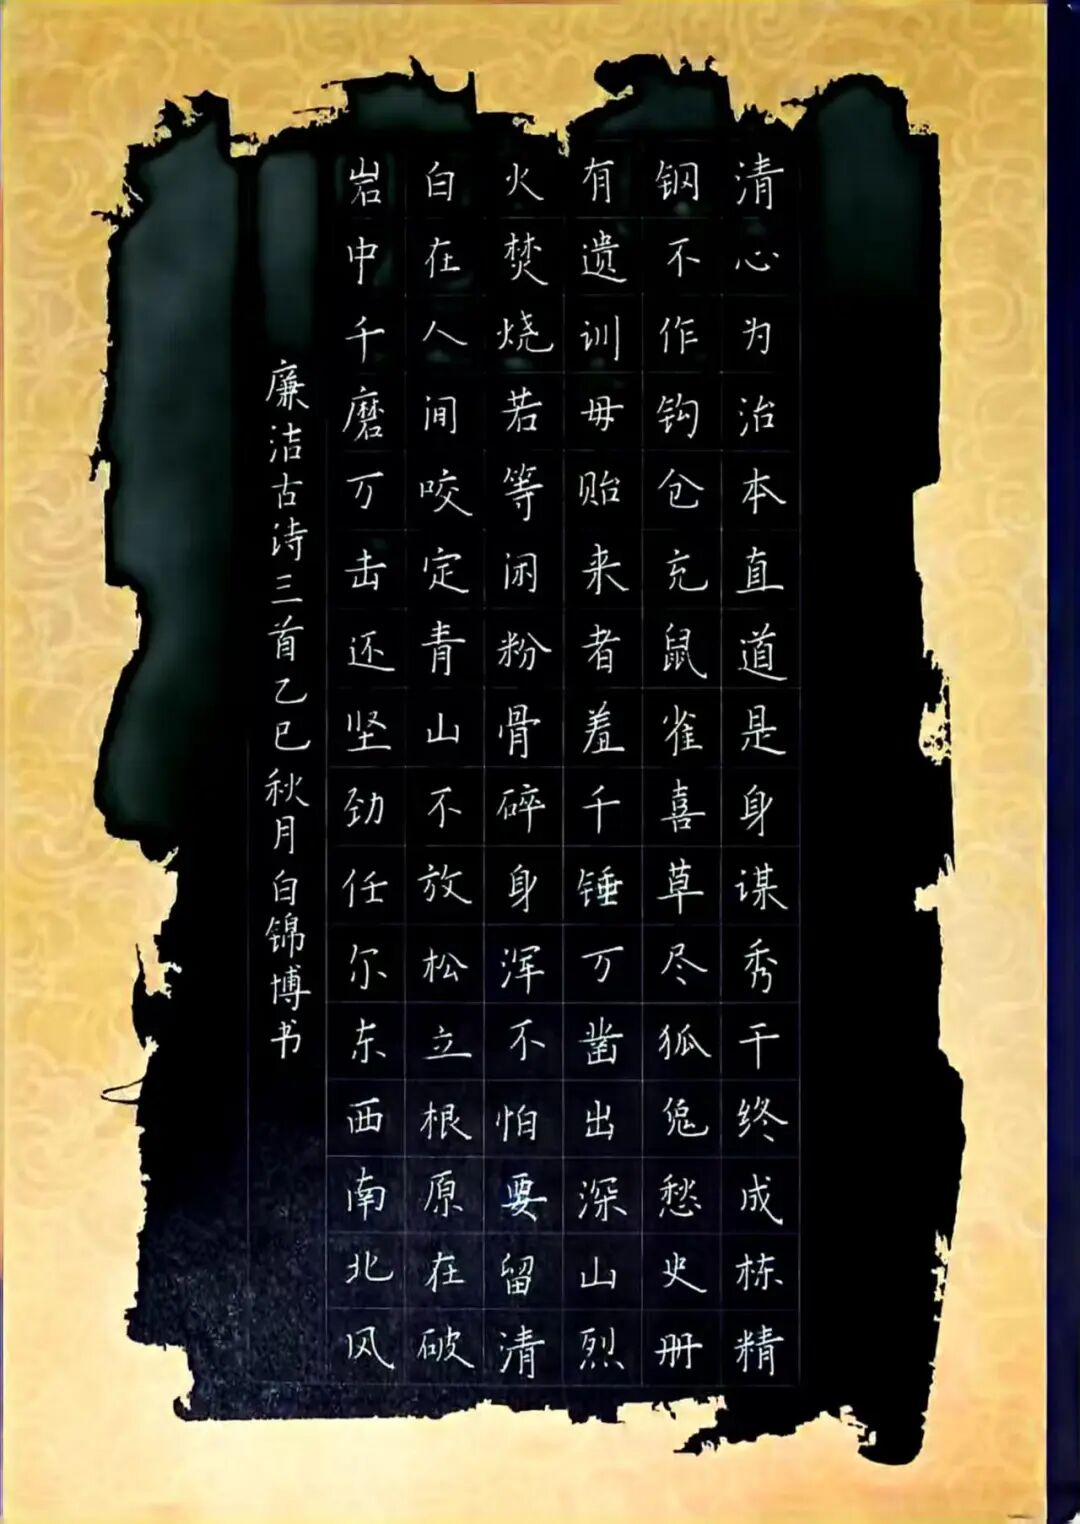 清心为治本直道是身谋秀干终成栋精
钢不作钩仓充鼠雀喜草尽狐兔愁史册
有遗训毋贻来者羞千锤万凿出深山烈
火焚烧若等闲粉骨碎身浑不怕要留清
白在人间咬定青山不放松立根原在破
岩中千磨万击还坚劲任尔东西南北风
廉洁古诗三首乙巳秋月白锦博书